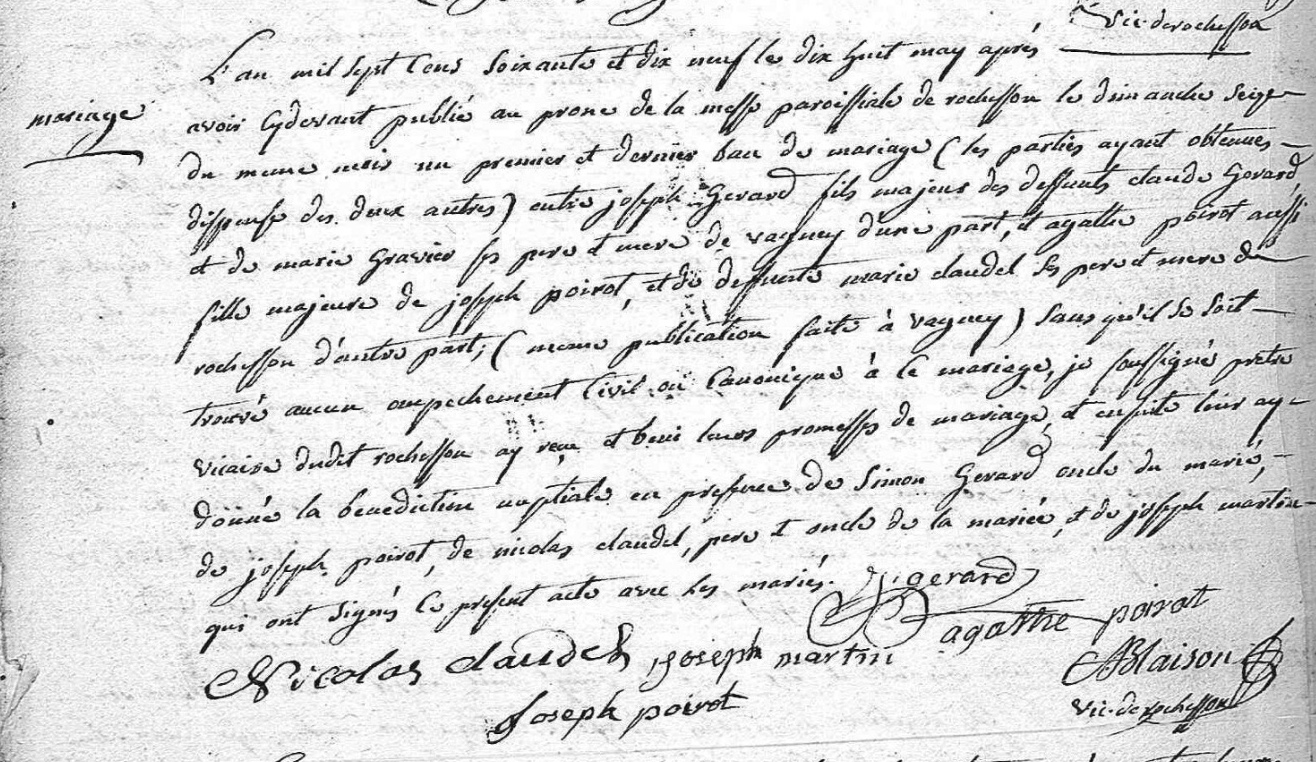 Vic. de rochesson
L'an mil sept Cens soixante et dix neuf le dix huit may aprés
mariage
avoir Cydevant publié au prone de la messe paroissiale de rochesson le dimanche seize
du meme mois un premier et dernier ban de mariage (les parties ayant obtenues
dispense des deux autres) entre joseph Gerard fils majeur des deffunts claude Gerard,
et de marie Gravier ses pere et mere de vagney d'une part, et agathe poirot aussi
fille majeure de joseph poirot, et de deffunte marie claudel ses pere et mere de
rochesson d'autre part; (meme publication faite à vagney) sans qu'il se soit
trouvé aucun empechement Civil ou Canonique à ce mariage, je soussigné pretre
vicaire dudit rochesson ay reçu et beni leurs promesses de mariage, et ensuite leur ay
donné la benediction nuptiale en presence de Simon Gerard oncle du marié,
de joseph poirot, de nicolas claudel, pere et oncle de la mariée, et de joseph martin
qui ont signés le present acte avec les mariés.
j gerard
agathe poirot
Nicolas claudel joseph martin
Blaison
joseph poirot
vic. de rochesson